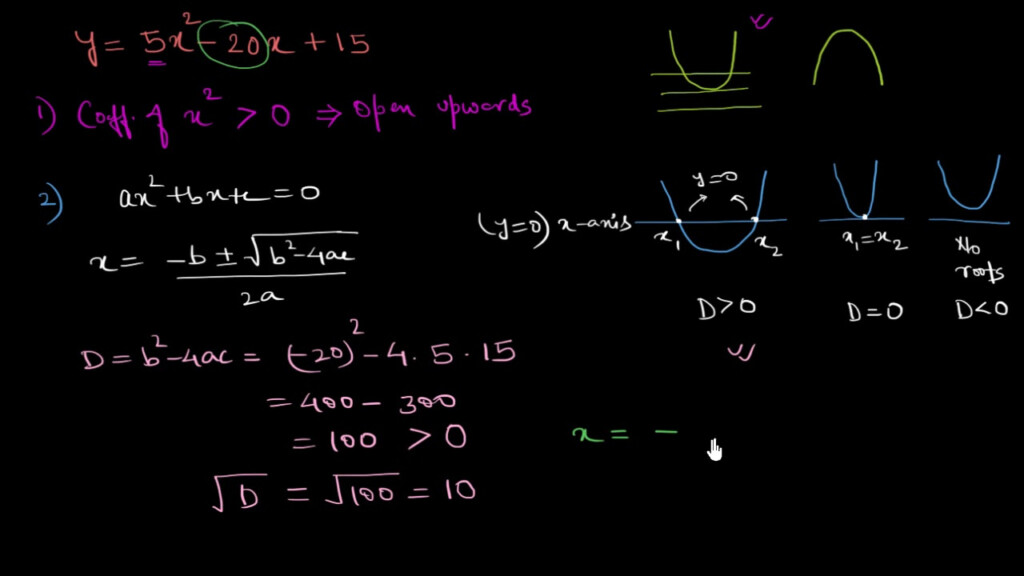 y = 5x² - 20x + 15
1) Coff. of x² > 0 ⇒ Open upwards
2) ax² + bx + c = 0
x = \frac{-b ± √(b² - 4ac)}{2a}
D = b² - 4ac = (-20)² - 4 · 5 · 15
= 400 - 300
= 100 > 0
√D = √100 = 10
y=0
(y=0) x-axis
x₁ x₂
D > 0
x₁ = x₂
D = 0
No
roots
D < 0
x = -